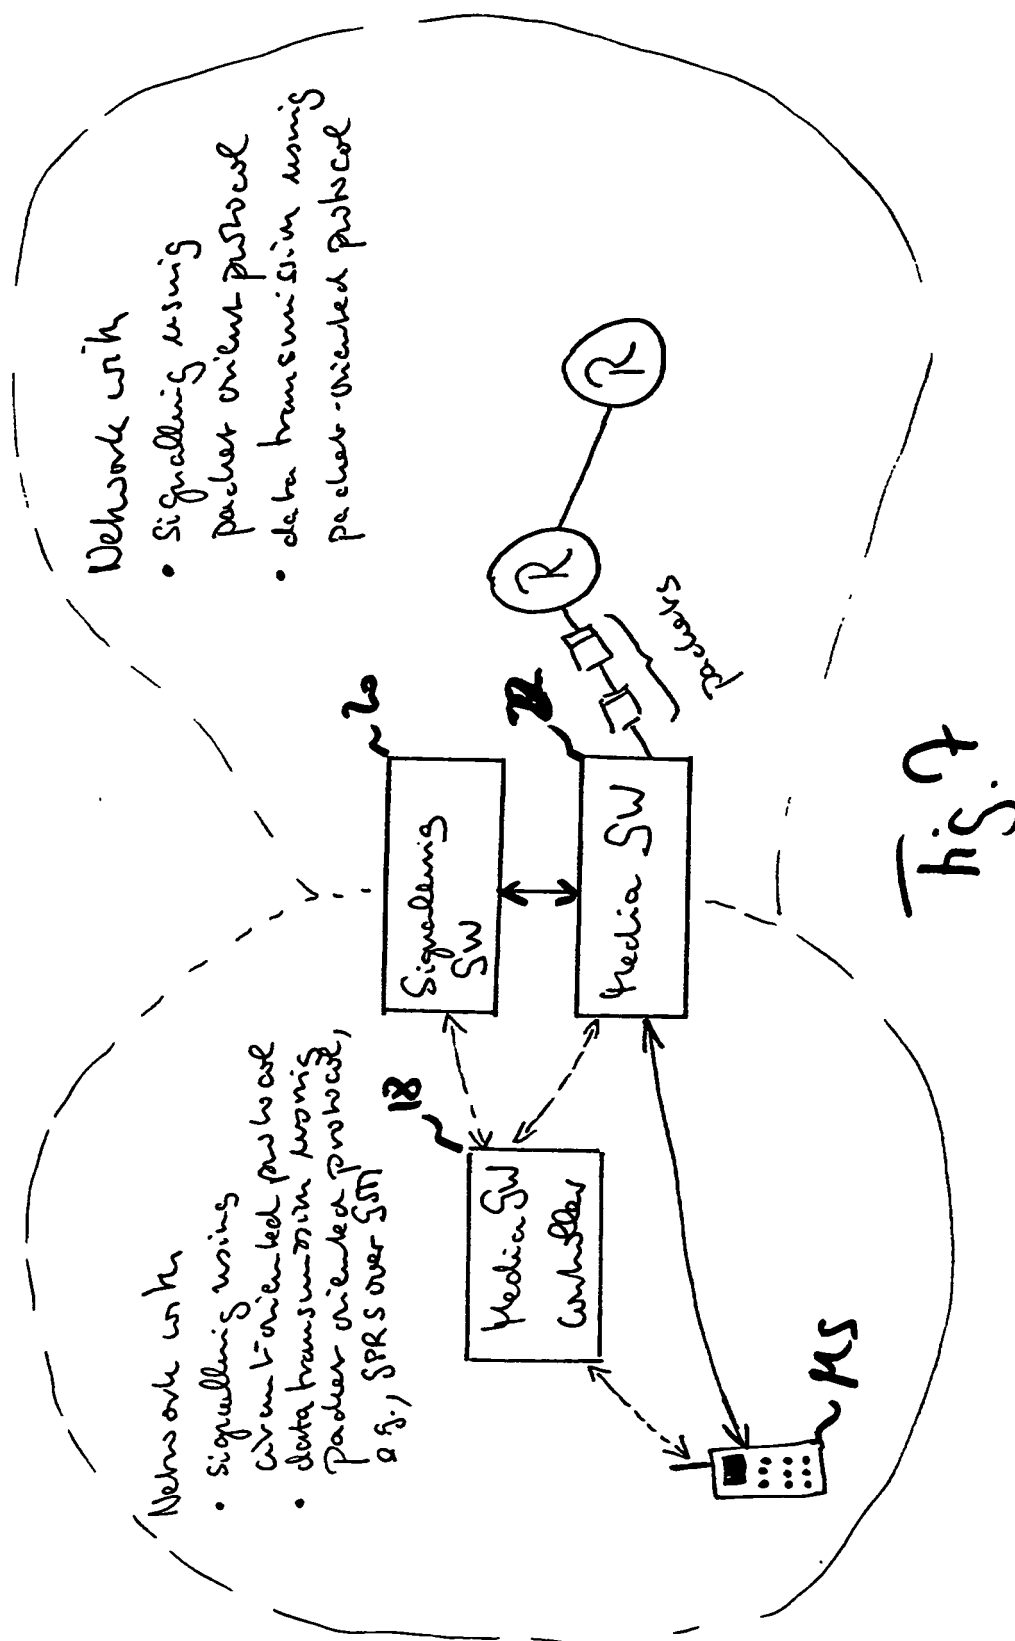 Network with
• Signalling using
circuit-oriented protocol
• data transmission using
packet oriented protocol,
e.g., GPRS over GSM
Network with
• Signalling using
packet orient protocol
• data transmission using
packet-oriented protocol
18
Media GW
Controller
20
Signalling
GW
22
Media GW
packets
R
R
MS
Fig. 7